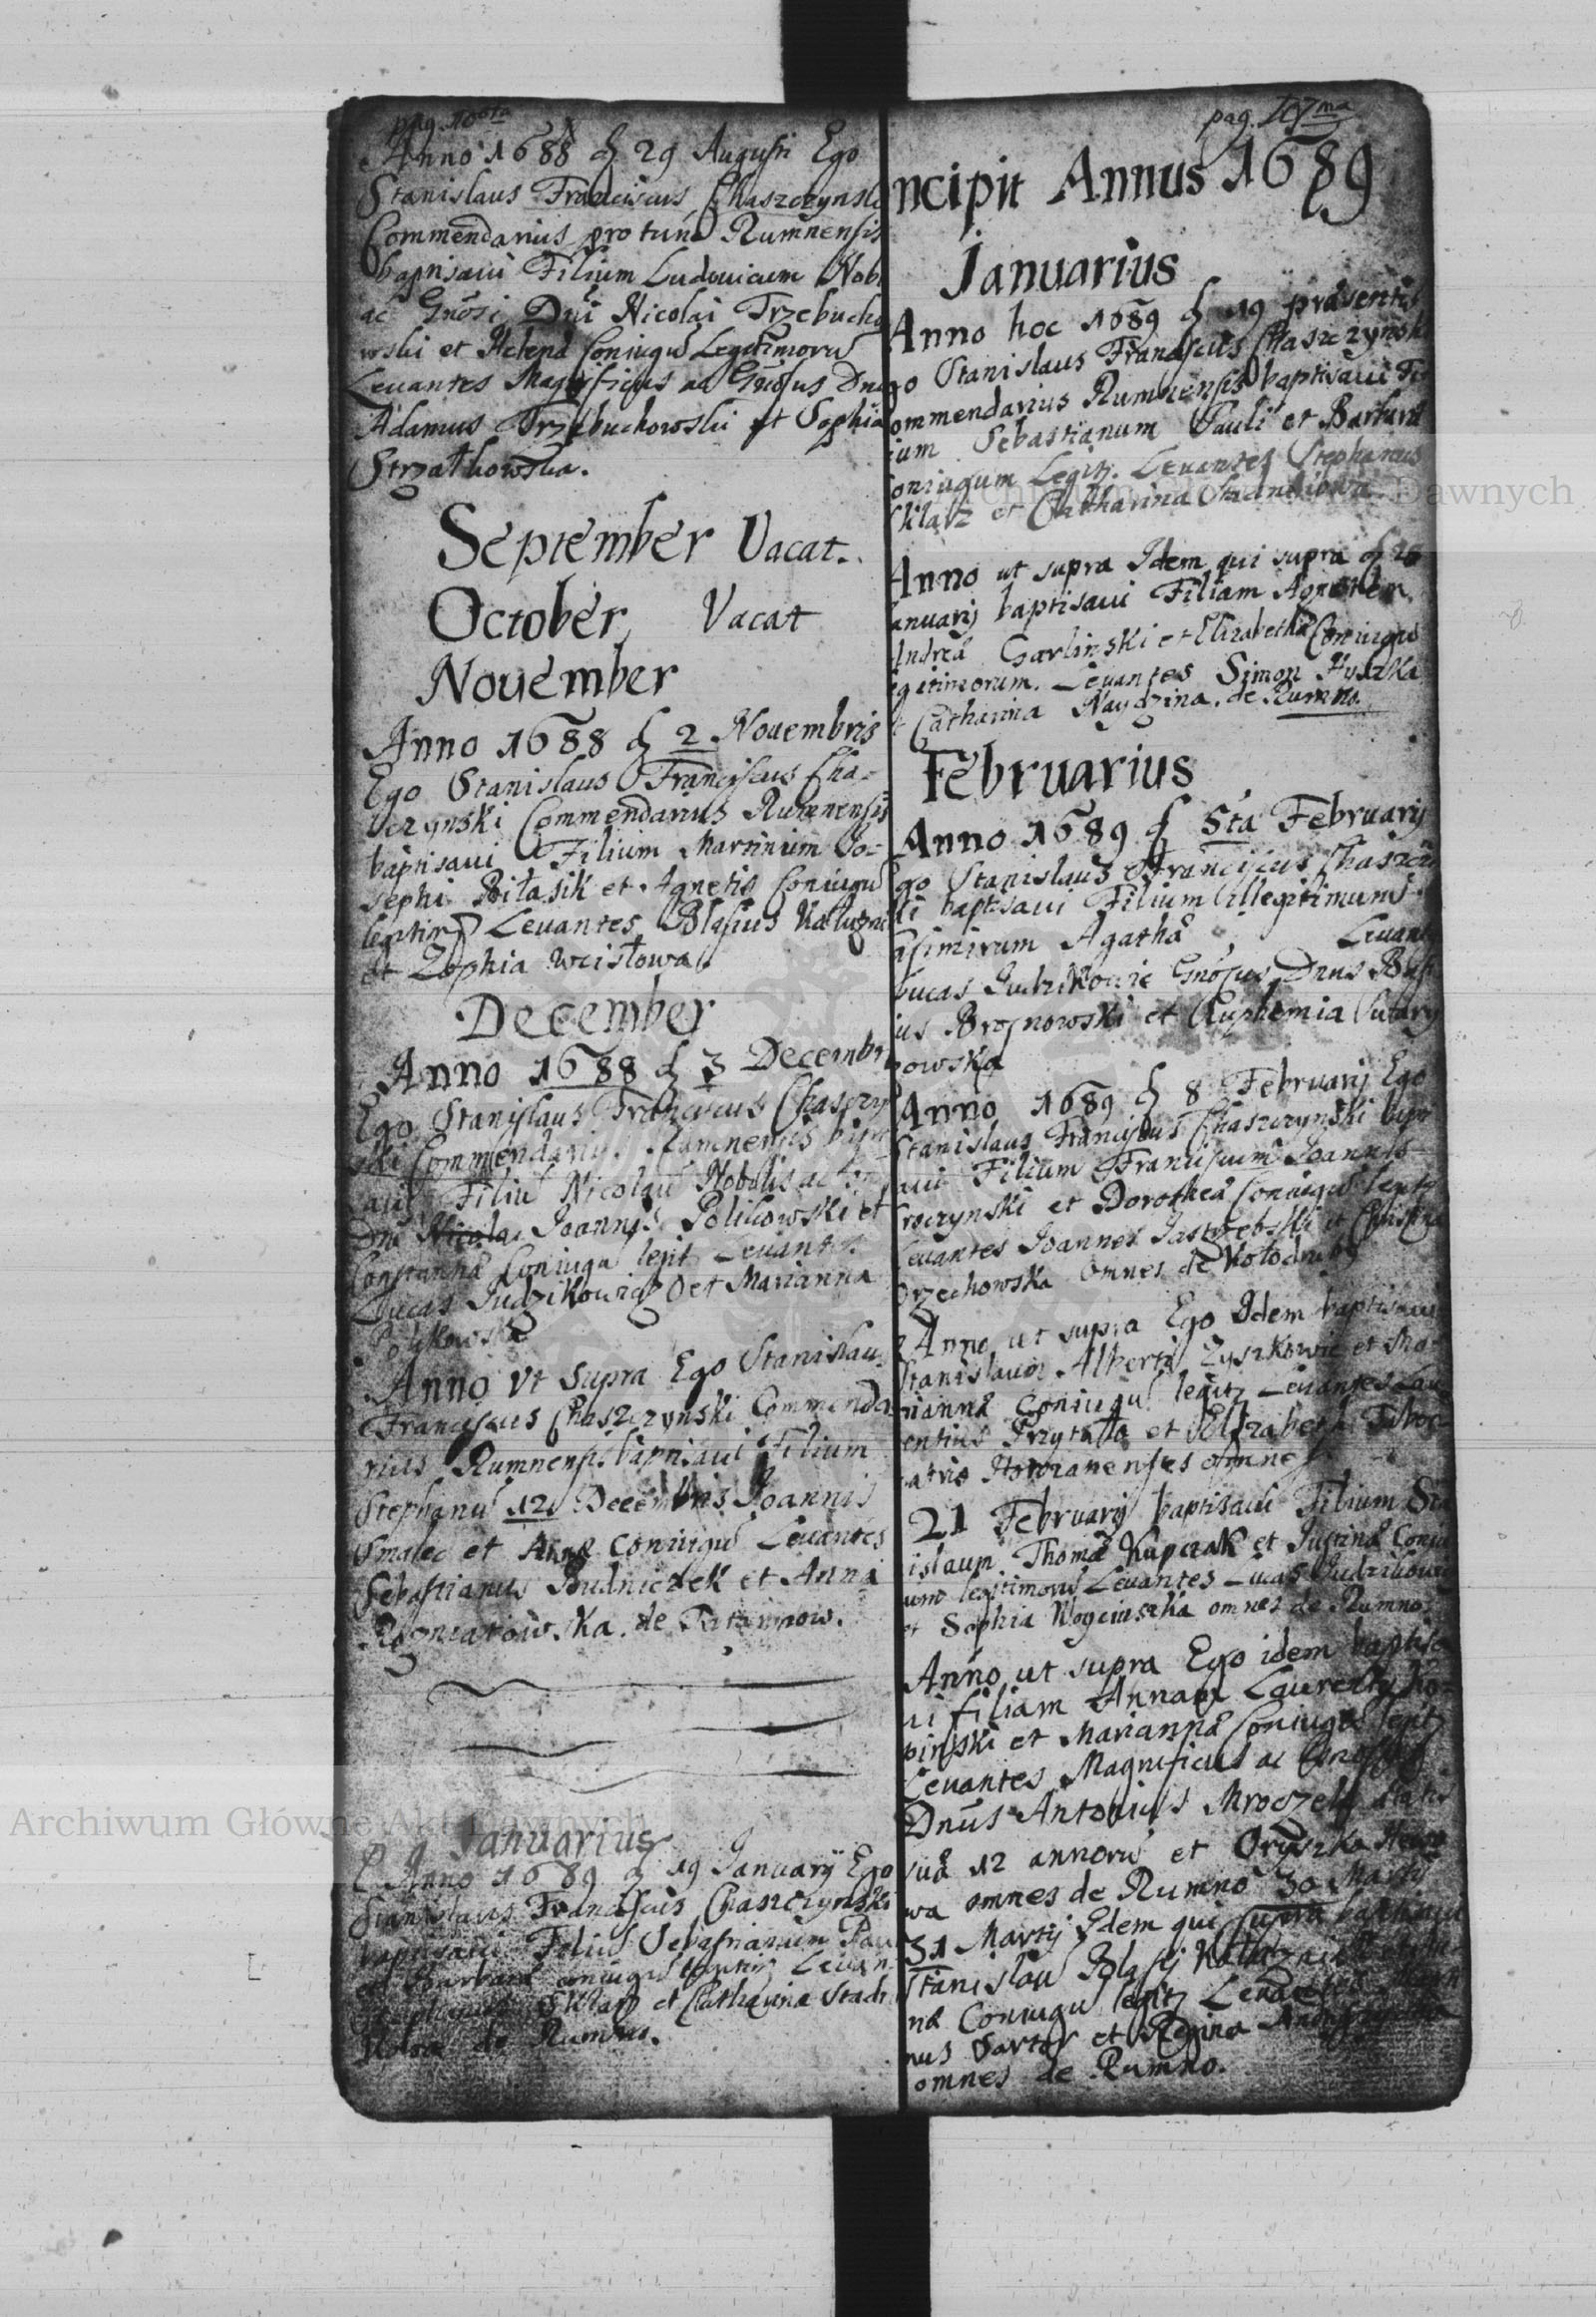 Anno 1688 d 29 Augusti Ego
Stanislaus Franciscus Chaszczynski
Commendarius pro tunc Rumnensis
baptisaui Filium Ludouicum Nob
ac Gnosi Dni Nicolai Trzebucho
wski et Helena Coniugu Legitimoru
Leuantes Magnificus ac Gnosus Dnus
Adamus Trzebuchowski et Sophia
Strzałkowska.
September Vacat.
October Vacat
Nouember
Anno 1688 d 2 Nouembris
Ego Stanislaus Franciscus Cha-
sczynski Commendarius Rumnensis
baptisaui Filium Martinum Jo-
sephi Biłasik et Agnetis Coniugu
legitim Leuantes Blasius Kałuzni
et Zophia Wcisłowa.
December
Anno 1688 d 3 Decembr
Ego Stanislaus Franciscus Chaszczy
ski Commendariu. Rumnensis
aui Filiu Nicolau Nobilis ac
Dni Nicolai Joannis Policowski et
Constantia Coniugu legit Leuantes
Lucas Judzikowicz et Marianna
Polikowska
Anno Vt Supra Ego Stanislau
Franciscus Chaszczynski Commenda
rius Rumnensis baptisaui Filium
Stephanu 12 Decembris Joannis
Smalec et Anna Coniugu Leuantes
Sebastianus Budniczek et Anna
Rozniatowska de
Januarius
Anno 1689 d 19 Januarij Ego
Stanislaus Franciscus Chaszczynski
baptisaui Filiu Sebastianum Pau
et Barbara coniugu legitim Leuan
Sklarz et Catharina Stach
de Rumno.
pag.
ncipit Annus 1689
Januarius
Anno hoc 1689 d 19 præsentis
go Stanislaus Franciscus Chaszczynski
ommendarius Rumnensis baptisaui Fi
ium Sebastianum Pauli et Barbara
oniugum Legit. Leuantes Stephanus
Sklarz et Catharina
Anno ut supra Idem qui supra d 25
anuarij baptisaui Filiam Agnetem
Andrea Garlinski et Elizabetha Coniugu
egitimorum. Leuantes Simon Hyszka
Catharina Nayozina. de Rumno.
Februarius
Anno 1689 d 5ta Februarij
go Stanislaus Franciscus Chaszczy
ki baptisaui Filium illegitimum
asimirum Agatha Leuant
Lucas Judzikowic Gnosus Dnus
ius Brosnowski et Euphemia
owska
Anno 1689 d 8 Februarij Ego
Stanislaus Franciscus Chaszczynski bapt
aui Filium Franciscum Joannis
roczynski et Dorothea Coniugu legit
Leuantes Joannes Jastrzebski et Christina
Orzechowska Omnes de Kołodruby
Anno ut supra Ego Idem baptisaui
Stanislaum Alberti Zyszkowic et Ma-
rianna Coniugu legit Leuantes Lau
entius Przytuła et Elizabeth
omnes
21 Februarij baptisaui Filium Sta
islaum Thoma Kupczak et Justina Coniu
um legitimoru Leuantes Lucas Judzikowic
et Sophia Woyciuszka omnes de Rumno
Anno ut supra Ego idem baptisa
ui filiam Annam Laurentij Ko-
pinski et Marianna Coniugu legit
Leuantes Magnificus ac Gnosus
Dnus Antonius Mroczek ætatis
sua 12 annoru et Oryszka
wa omnes de Rumno 30 Martij
31 Martij Idem qui supra baptisaui
Stanislau Blasij
na Coniugu legit Leuantes
nus Sartor et Regina
omnes de Rumno.
Archiwum Główne Akt Dawnych
Archiwum Główne Akt Dawnych